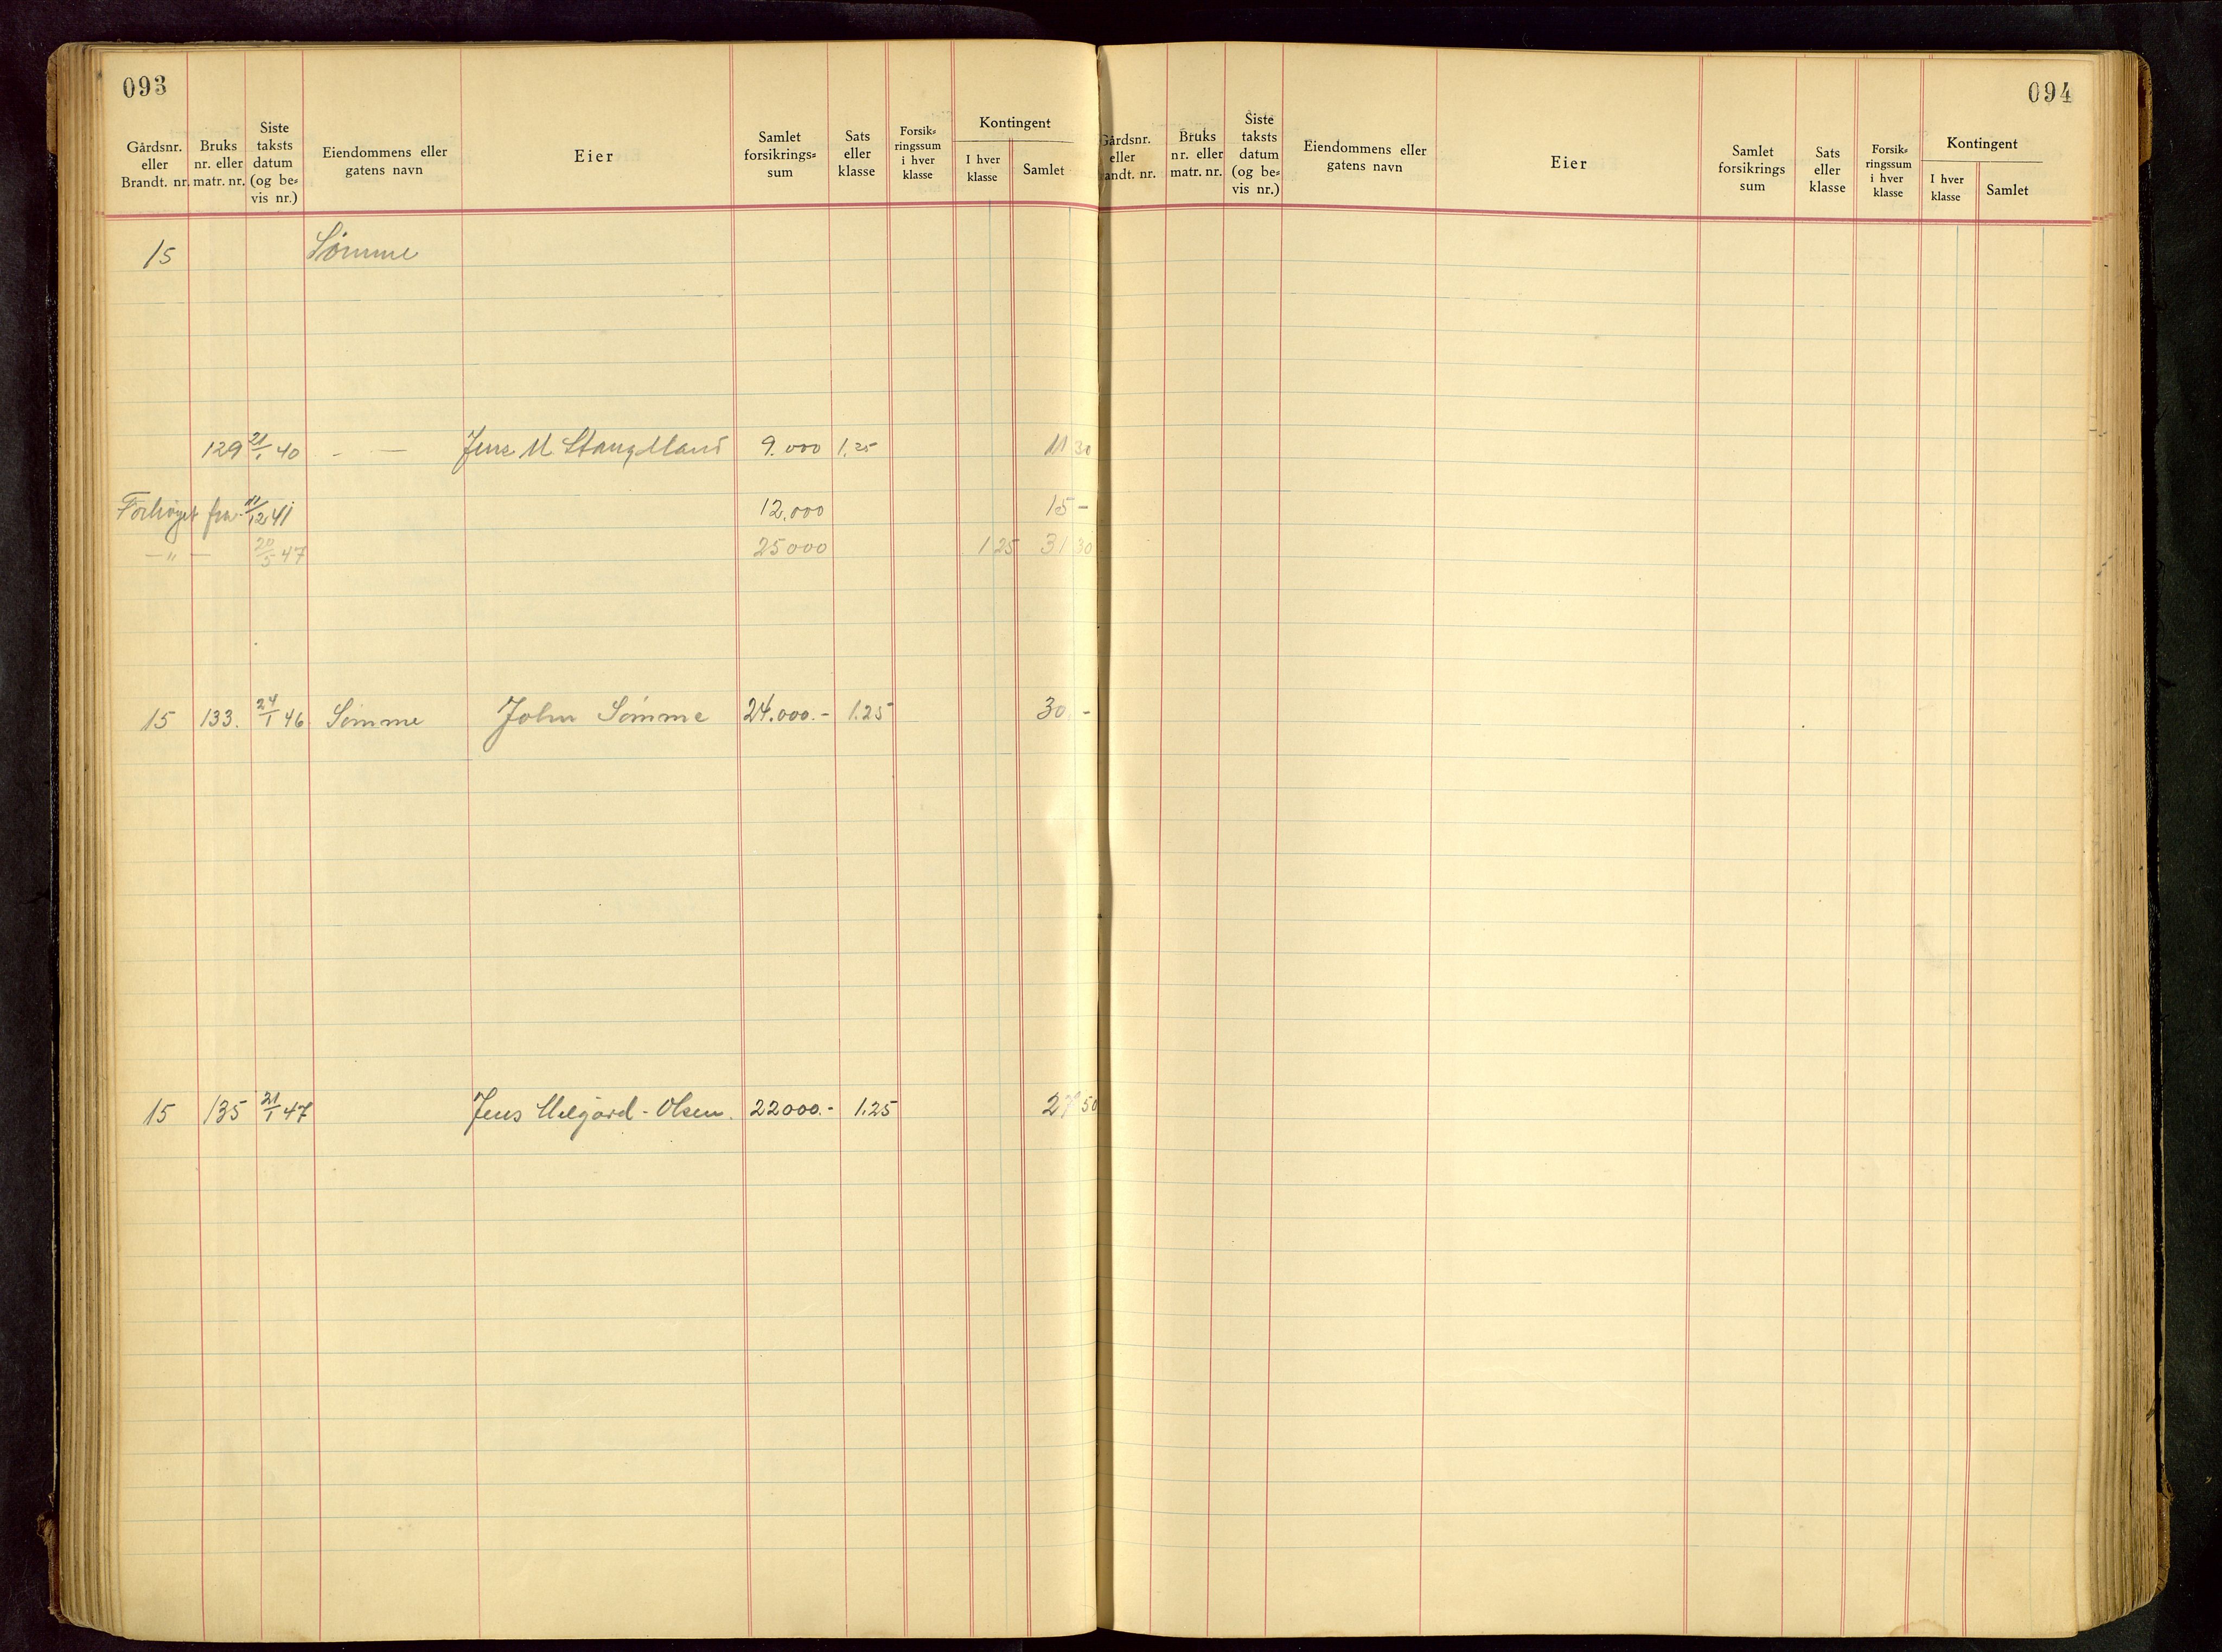 093
Gårdsnr. eller Brandt. nr. Bruks nr. eller matr. nr. Siste taksts datum (og be= vis nr.) Eiendommens eller gatens navn Eier Samlet forsikrings= sum Sats eller klasse Forsik= ringssum i hver klasse Kontingent I hver klasse Samlet
15 Sømme
129 21/1 40 - — Jens M Stangeland 9.000 1.25 11 30
Forhøyet fra 11/12 41 12.000 15 -
— " — 20/5 47 25000 1 25 31 30
15 133. 24/1 46 Sømme John Sømme 24.000.- 1.25 30 -
15 135 21/1 47 Jens Melgård - Olsen. 22000.- 1.25 27 50
094
Gårdsnr. eller Brandt. nr. Bruks nr. eller matr. nr. Siste taksts datum (og be= vis nr.) Eiendommens eller gatens navn Eier Samlet forsikrings sum Sats eller klasse Forsik= ringssum i hver klasse Kontingent I hver klasse Samlet